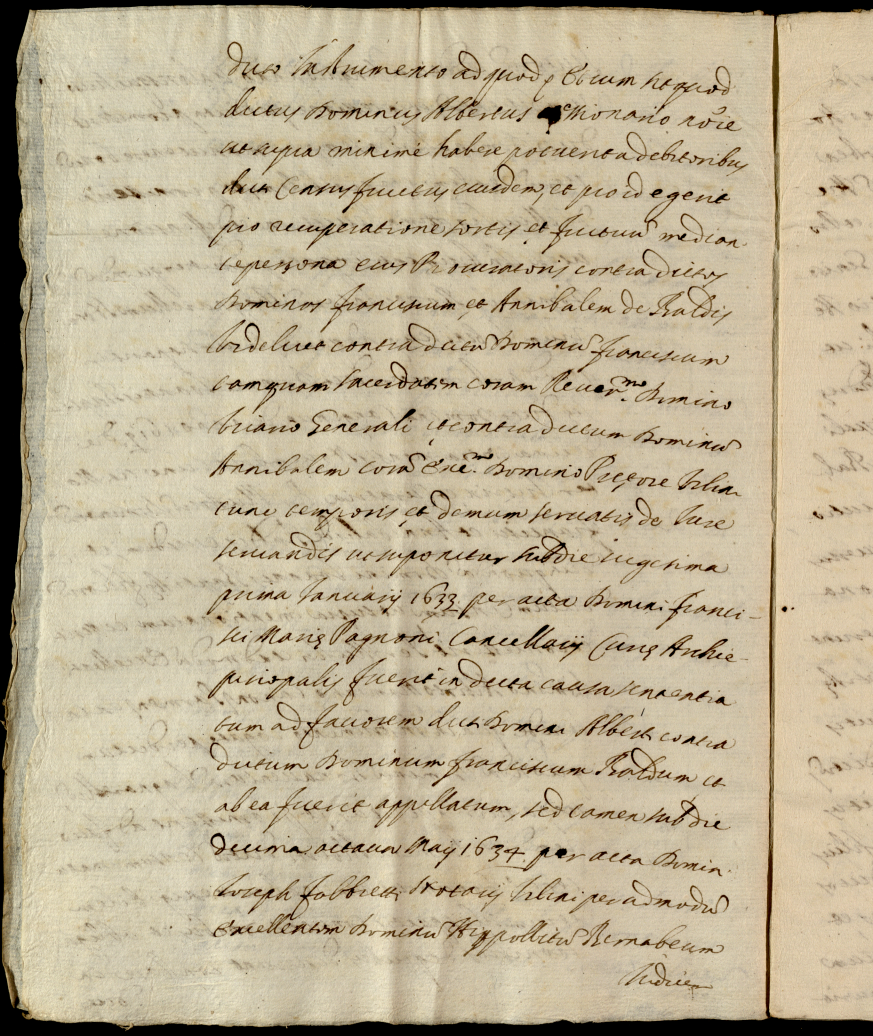 dicto Instrumento ad quod et cum sit quod
dictus Dominus Albertus nõie
ut supra minime habere potuerit a debitoribus
dict Census fructus eiusdem, et pro id egerit
pro recuperatione sortis et fructuũ median
te persona eius Procuratoris contra dictos
Dominos franciscum et Annibalem de Baldis
videlicet contra dictũ Dominũ franciscum
tamquam sacerdotem coram Reuer.mo Domino
Vicario Generali et contra dictum Dominũ
Annibalem corã Domino Pretore
tunc temporis et demum seruatis de Iure
seruandis ut supponitur sub die uigesima
prima Ianuarij 1633 per acta Domini franci-
sci Marię Pagnoni Cancellarij Curię Archie-
piscopalis fuerit in dicta causa sententia
tum ad fauorem dicti Domini Alberti contra
dictum Dominum franciscum Baldum et
ab ea fuerit appellatum, sed tamen sub die
decima octaua Maij 1634 per acta Domin
Ioseph fabbretti Notarij per admodũ
Excellentem Dominũ Hippollitũ Bernabeum
Iudicem